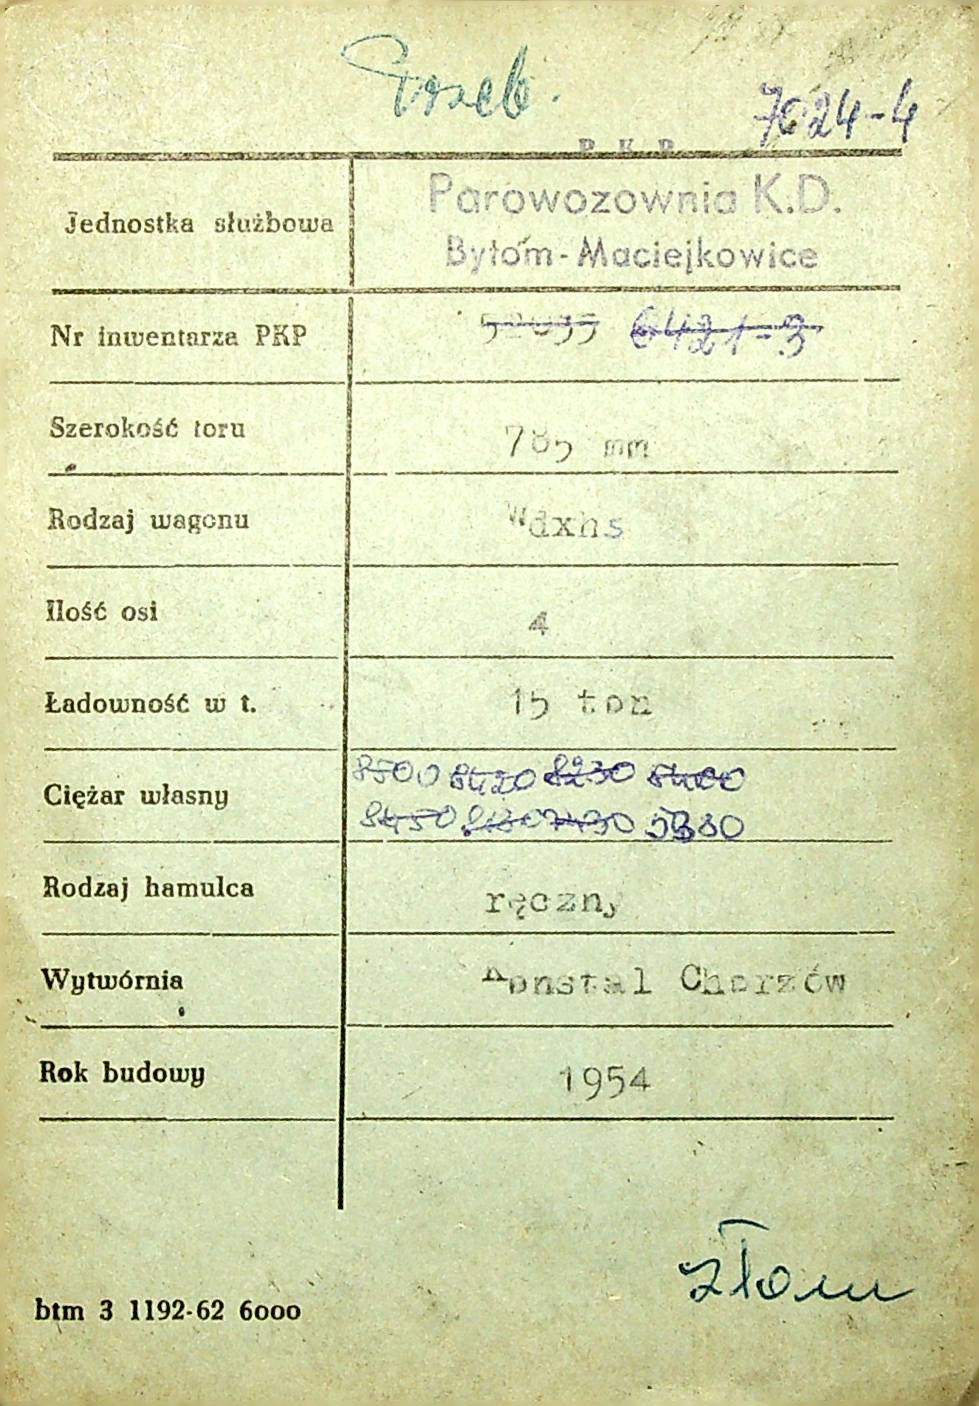 7024-4
P.K.P.
Jednostka służbowa Parowozownia K.D.
Bytom-Maciejkowice
Nr inwentarza PKP 6421-3
Szerokość toru 785 mm
Rodzaj wagonu Wdxhs
Ilość osi 4
Ładowność w t. 15 ton
8500 8420 8230 8400
Ciężar własny
8450
Rodzaj hamulca ręczny
Wytwórnia Konstal Chorzów
Rok budowy 1954
złom
btm 3 1192-62 6000